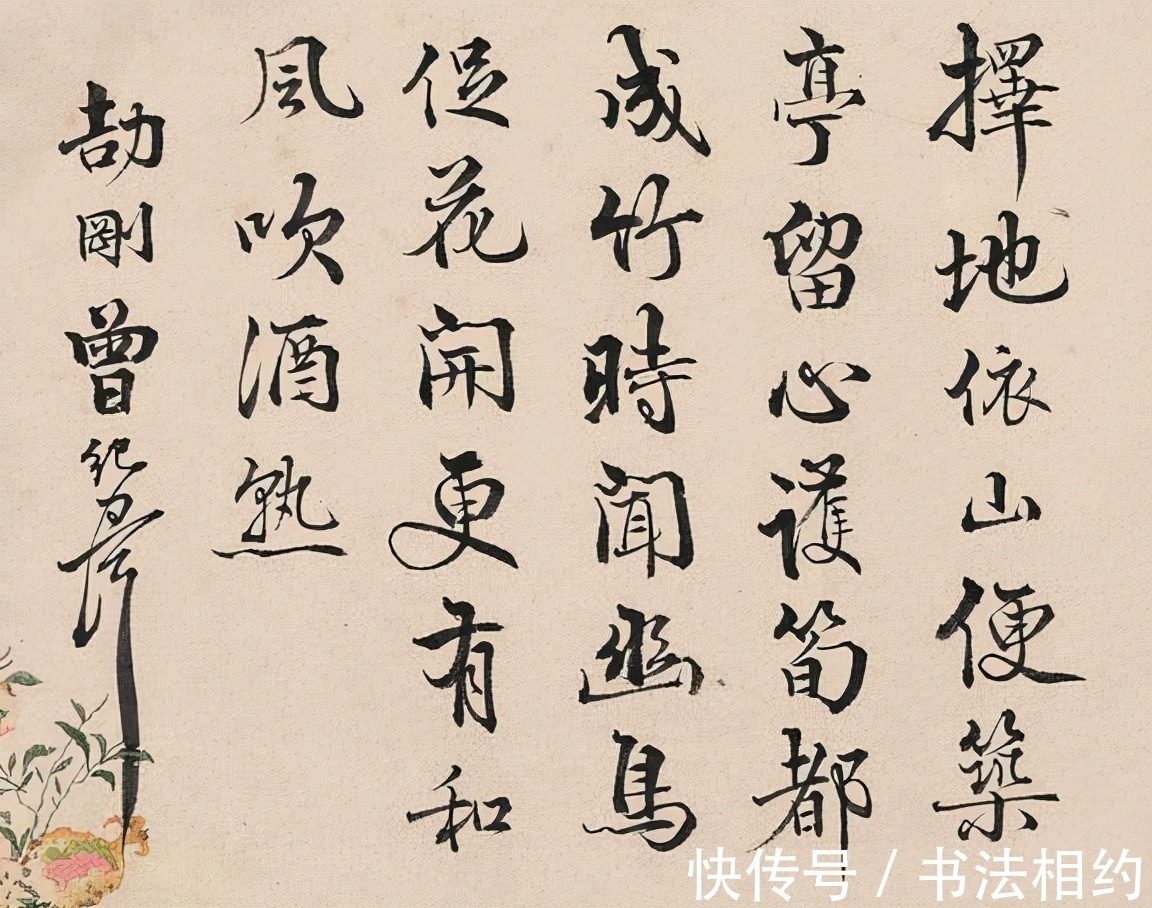 擇地依山便築
亭留心護筍都
成竹時聞幽鳥
促花開更有和
風吹酒熟
劼剛曾紀澤
快传号 / 书法相约